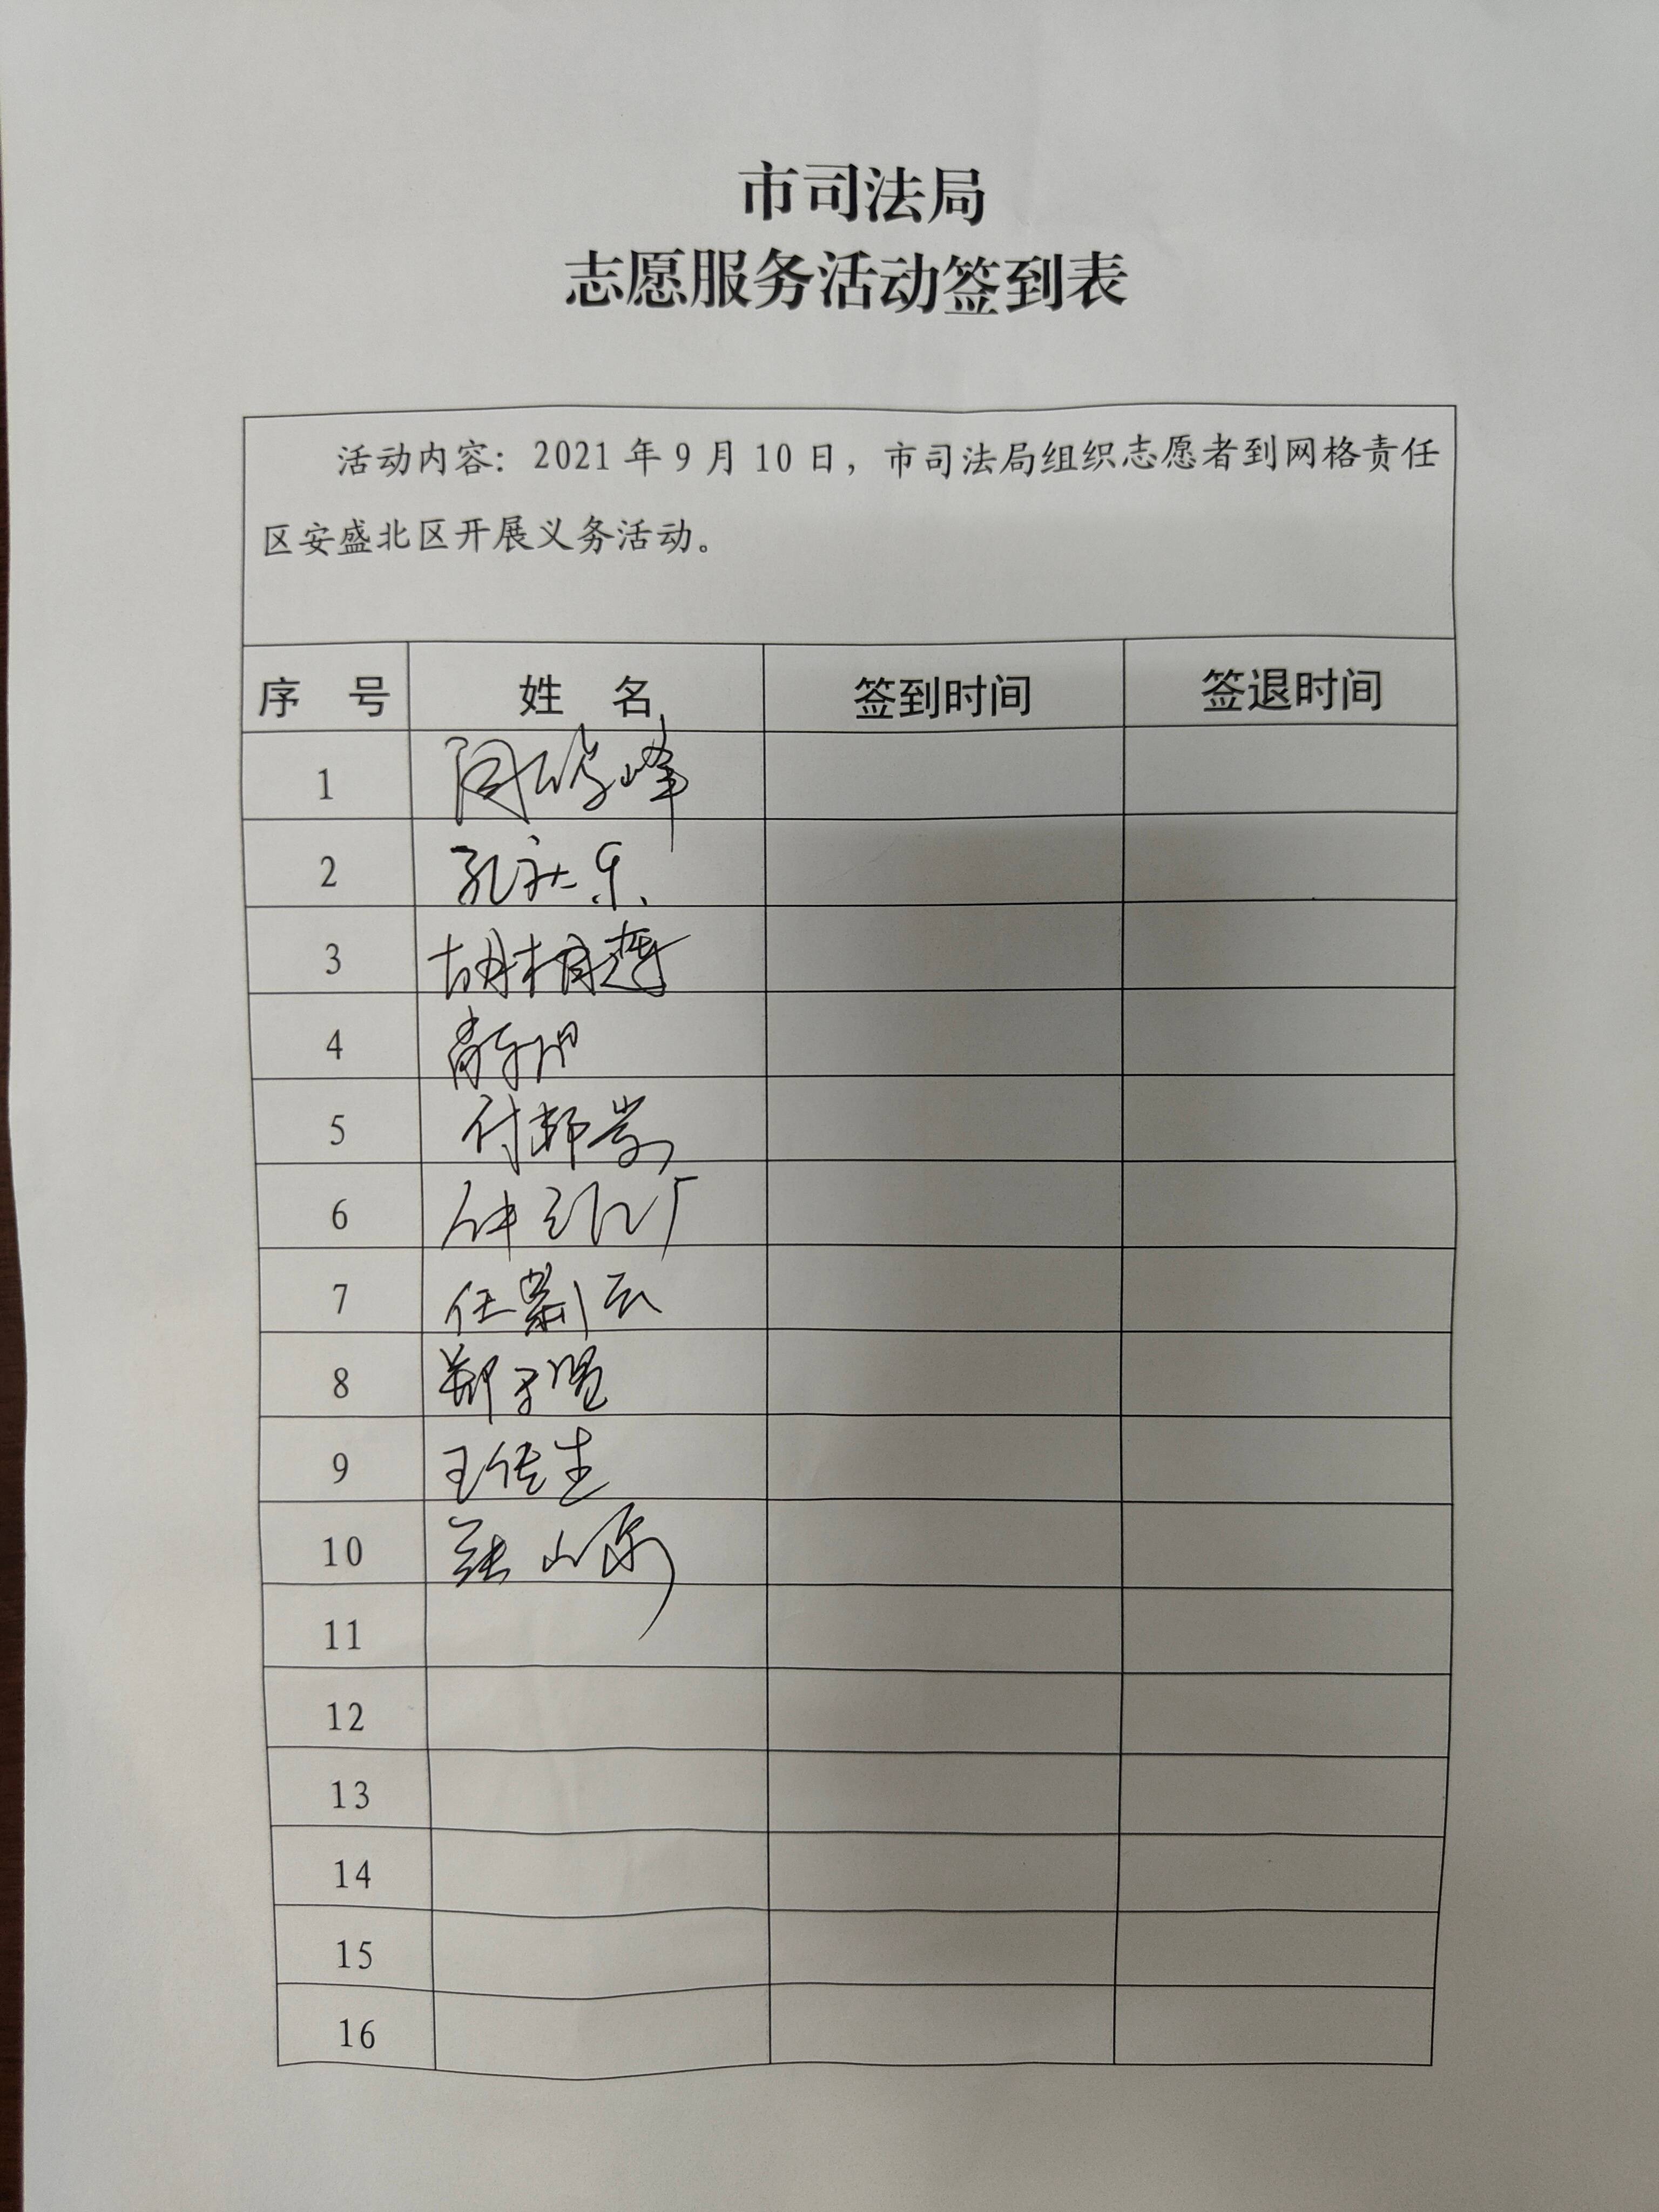 市司法局
志愿服务活动签到表
活动内容：2021年9月10日，市司法局组织志愿者到网格责任
区安盛北区开展义务活动。
序 号 姓 名 签到时间 签退时间
1
2
3 胡楠莲
4
5
6
7 任
8 郑子
9 王传生
10 张山
11
12
13
14
15
16